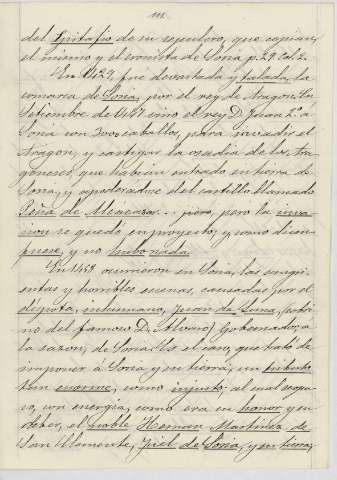 111.
del Epitafio de su sepulcro, que copian,
el mismo y el cronista de Soria p. 29. Col. 2.
En 1429, fue devastada y talada, la
comarca de Soria, por el rey de Aragon. En
Setiembre de 1447 vino el rey D. Juan 2º a
Soria con 3000 caballos, para invadir el
Aragon, y castigar la osadia de los Ara
goneses, que habian entrado en tierra de
Soria, y apoderadose del castillo llamado
Peña de Alcazar... pero, pero la inva
sion se quedó en proyecto, y como dicen
fuese, y no hubo nada.
En 1459 ocurrieron en Soria, las sangri
entas y horribles escenas, causadas por el
déspota, inhumano, Juan de Luna, sobri
no del famoso D. Alvaro, Gobernador, a
la sazon, de Soria. Es el caso, que trató de
imponer á Soria y su tierra, un tributo
tan enorme, como injusto; al cual se opu
so, con energia, como era su honor y su
deber, el noble Hernan Martinez de
San Clemente, Fiel de Soria, y su tierra,